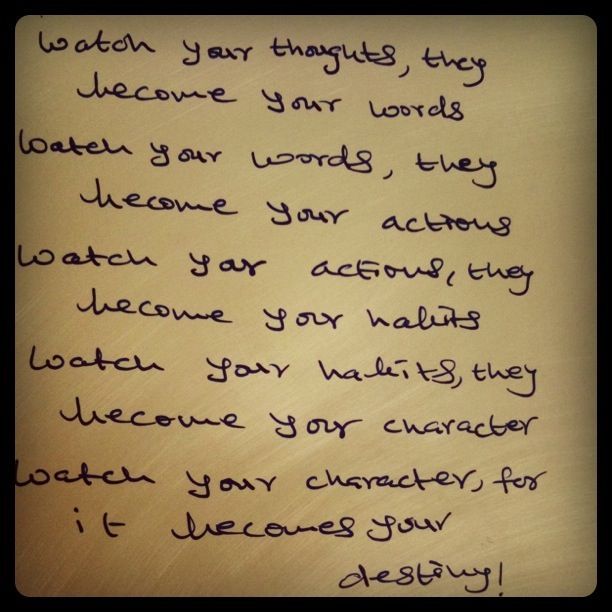 Watch your thoughts, they
become your words
Watch your words, they
become your actions
Watch your actions, they
become your habits
Watch your habits, they
become your character
Watch your character, for
it becomes your
destiny!